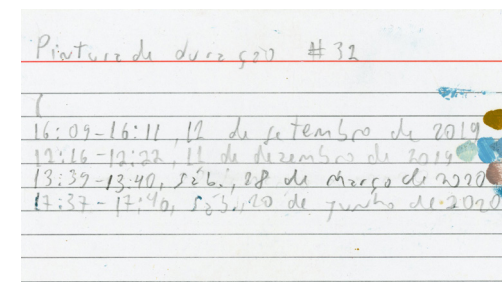 Pintura de duração #32
(
16:09-16:11, 12 de setembro de 2019
12:16-12:22, 11 de dezembro de 2019
13:39-13:40, sáb., 28 de março de 2020
17:37-17:40, sáb., 20 de junho de 2020